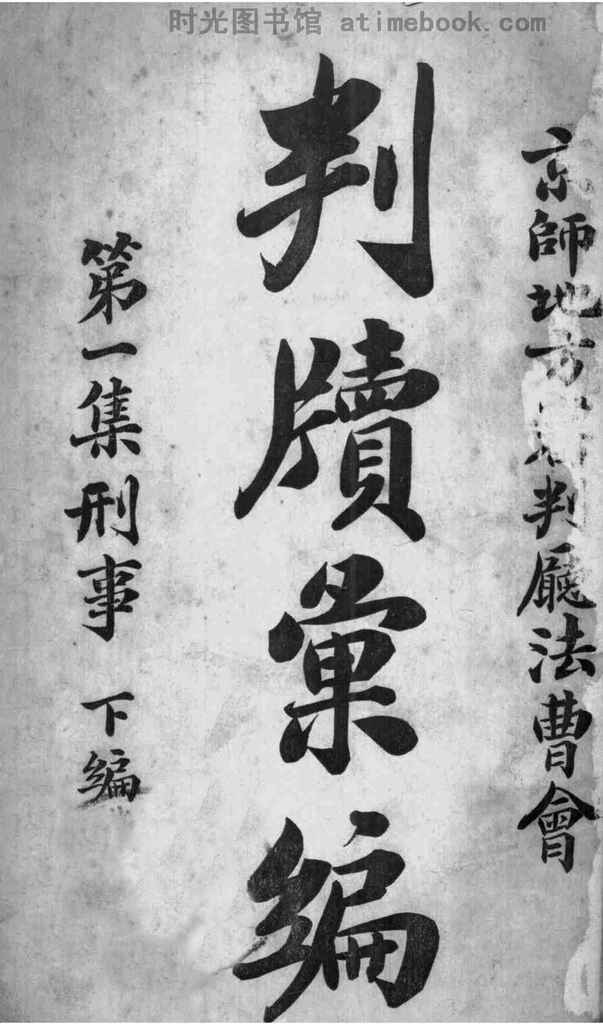 时光图书馆 atimebook.com
京師地方審判廳法曹會
判牘彙編
第一集刑事 下編